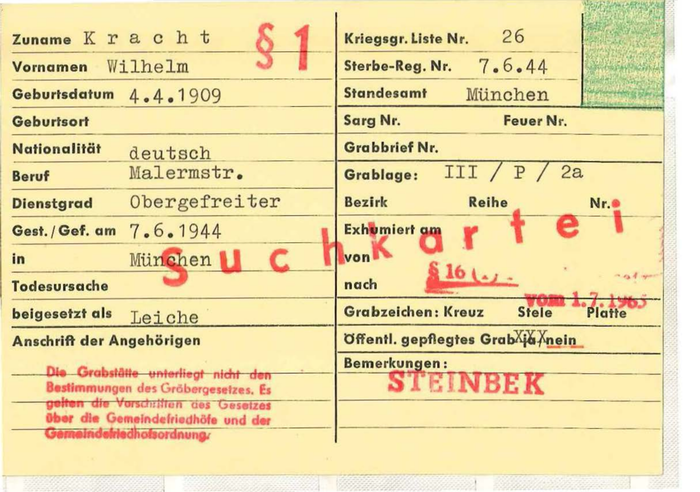 Zuname K r a c h t
§ 1
Vornamen Wilhelm
Geburtsdatum 4.4.1909
Geburtsort
Nationalität deutsch
Beruf Malermstr.
Dienstgrad Obergefreiter
Gest./Gef. am 7.6.1944
in München
Todesursache
beigesetzt als Leiche
Anschrift der Angehörigen
Die Grabstätte unterliegt nicht den
Bestimmungen des Gräbergesetzes. Es
gelten die Vorschriften des Gesetzes
über die Gemeindefriedhöfe und der
Gemeindefriedhofsordnung.
Suchkartei
Kriegsgr. Liste Nr. 26
Sterbe-Reg. Nr. 7.6.44
Standesamt München
Sarg Nr. Feuer Nr.
Grabbrief Nr.
Grablage: III / P / 2a
Bezirk Reihe Nr.
Exhumiert am
von
§ 16
nach
vom 1.7.1965
Grabzeichen: Kreuz Stele Platte
Öffentl. gepflegtes Grab ja/nein
XXX
Bemerkungen:
STEINBEK